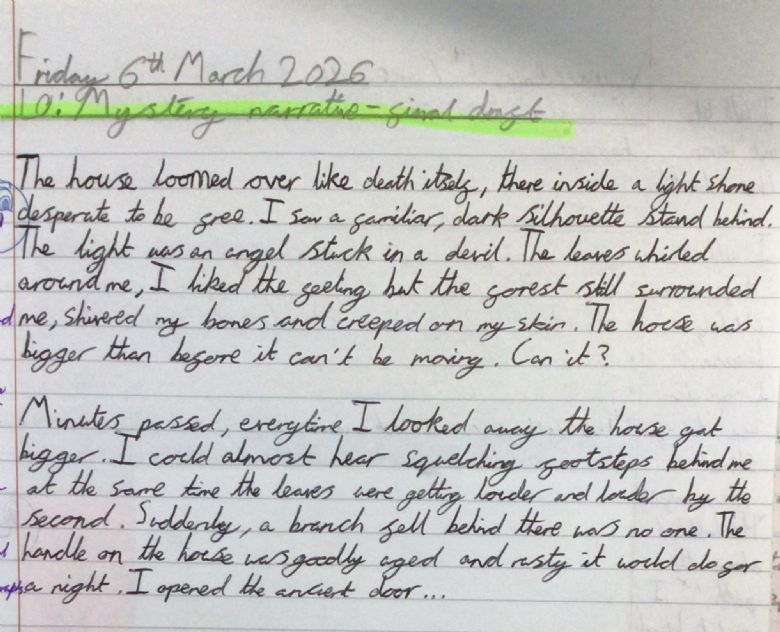 Friday 6th March 2026
LO: Mystery narrative - final draft
The house loomed over like death itself, there inside a light shone
desperate to be free. I saw a familiar, dark silhouette stand behind.
The light was an angel stuck in a devil. The leaves whirled
around me, I liked the feeling but the forest still surrounded
me, shivered my bones and creeped on my skin. The house was
bigger than before it can't be moving. Can it?
Minutes passed, everytime I looked away the house got
bigger. I could almost hear squelching footsteps behind me
at the same time the leaves were getting louder and louder by the
second. Suddenly, a branch fell behind there was no one. The
handle on the house was goodly aged and rusty it would do for
a night. I opened the ancient door...